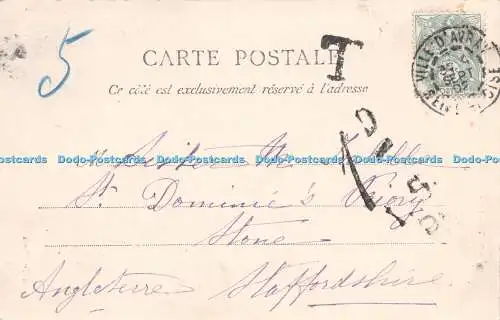 5
CARTE POSTALE
T
VILLE D'AVRAY
SEINE-ET-OISE
Ce côté est exclusivement réservé à l'adresse
Sister M.
Dodo-Postcards Dodo-Postcards Dodo-Postcards Dodo-Postcards Dodo-Postcards Dodo-Postcards
St. Dominic's Priory
Stone
Angleterre Staffordshire